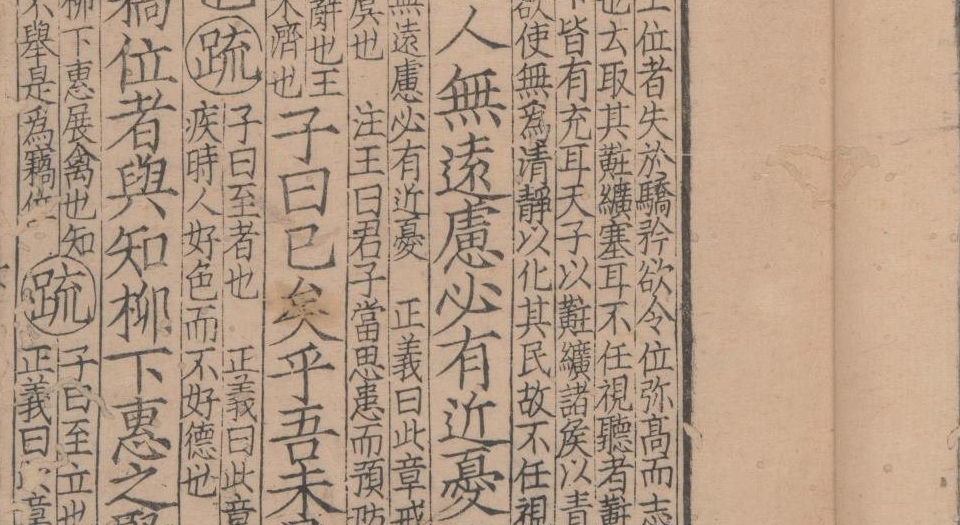 位者失於驕矜欲令位弥髙而志
也去取其黈纊塞耳不任視聽者黈
皆有充耳天子以黈纊諸矦以青
欲使無為清靜以化其民故不任視
人無遠慮必有近憂
無遠慮必有近憂 正義曰此章戒
虞也 注王曰君子當思患而預防
辭也王
濟也
子曰已矣乎吾未
疏
子曰至者也 正義曰此章
疾時人好色而不好德也
竊位者與知柳下惠之賢
柳下惠展禽也知
不舉是為竊位
疏
子曰至立也
正義曰 章